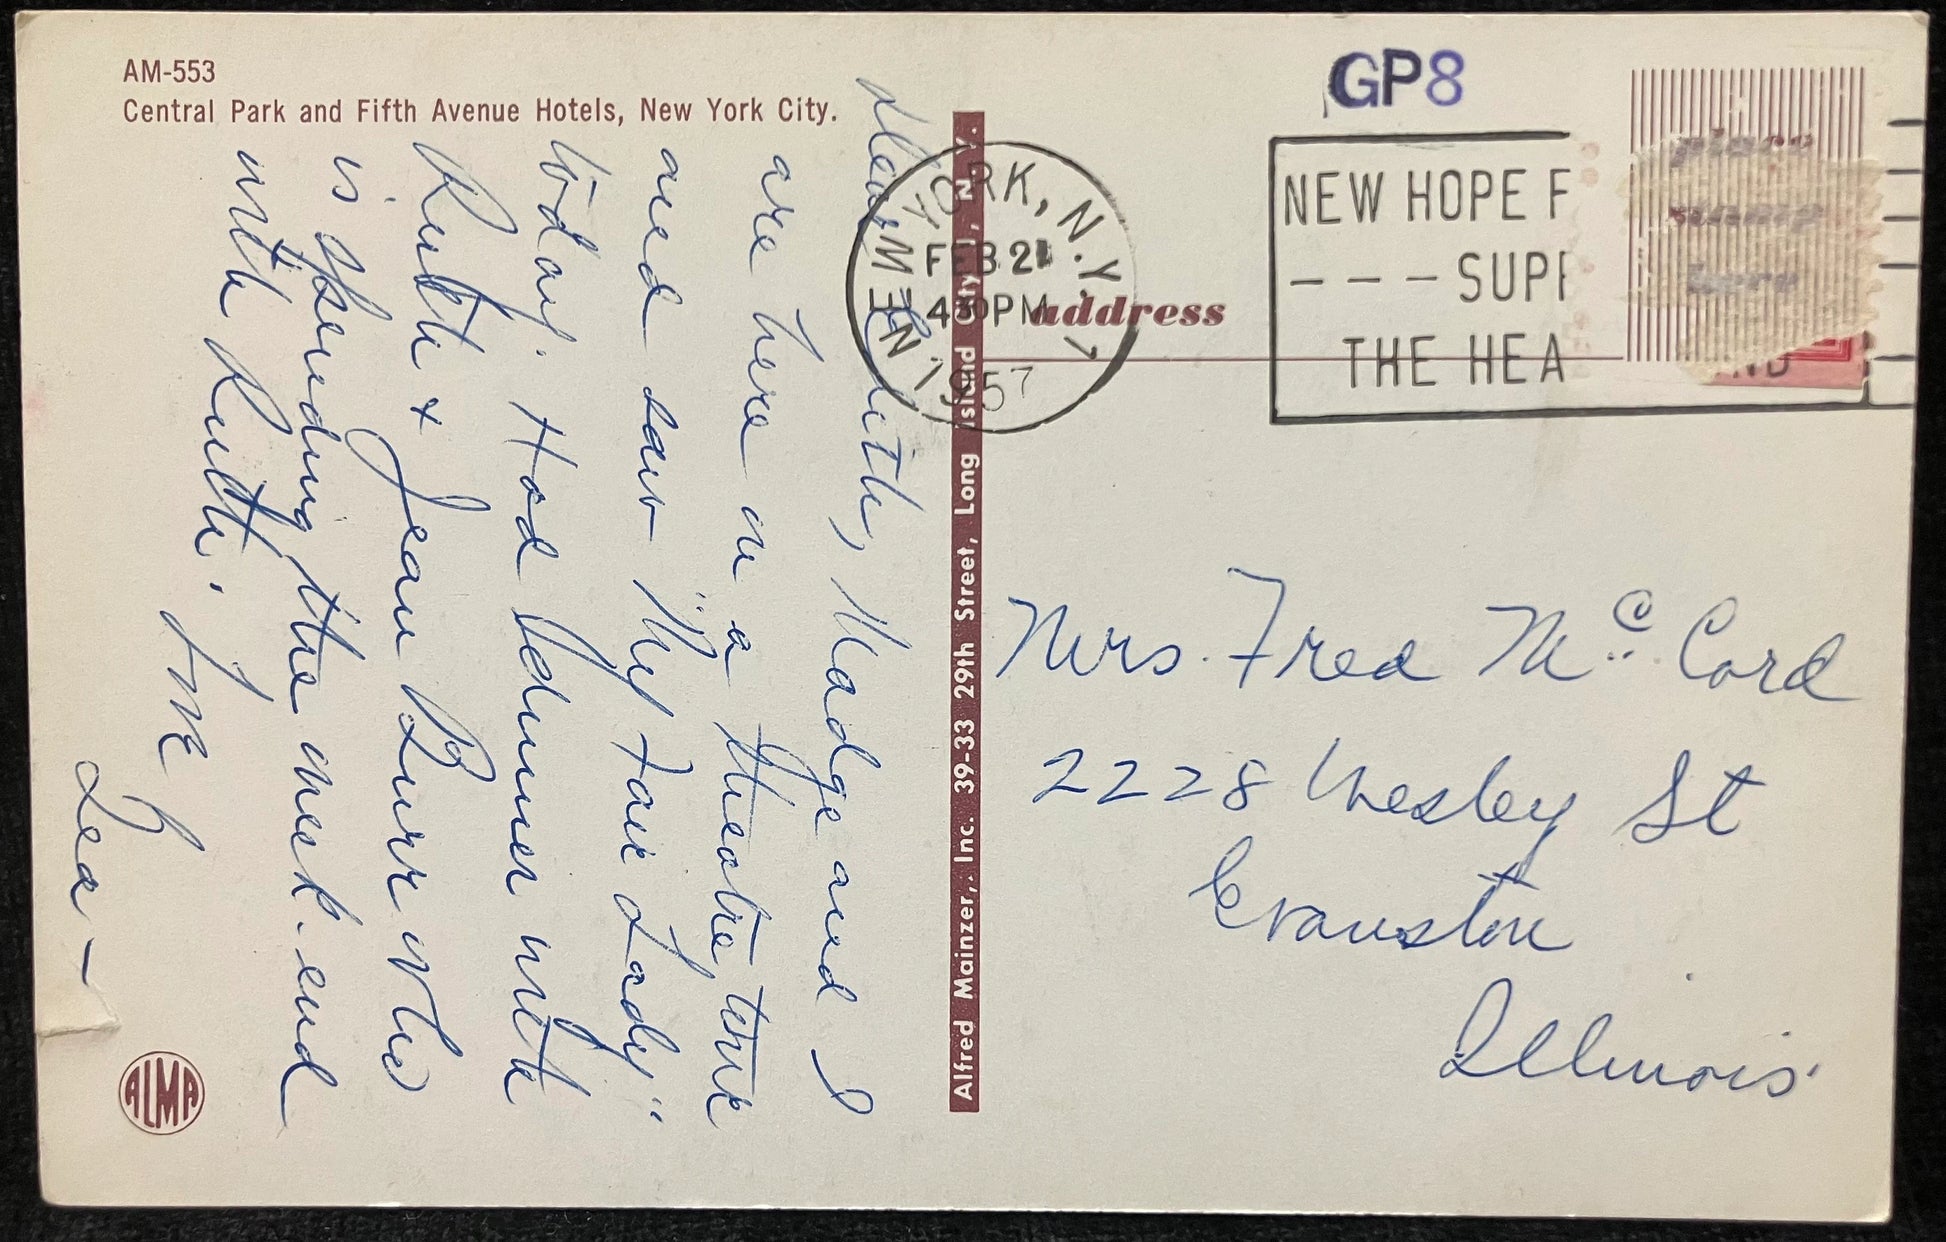 AM-553
Central Park and Fifth Avenue Hotels, New York City.
Dear Edith, Madge and I
are here on a theatre tour
and saw "My Fair Lady"
today. Had dinner with
Ruth & Jean Burr who
is spending the week-end
with Ruth.
Love
Lea —
ALMA
Alfred Mainzer, Inc. 39-33 29th Street, Long Island City 1, N. Y.
GP8
NEW YORK, N.Y.
FEB 2
430 PM
1957
NEW HOPE F
--- SUPP
THE HEA
ND
place
stamp
here
address
Mrs. Fred McCord
2228 Wesley St
Evanston
Illinois